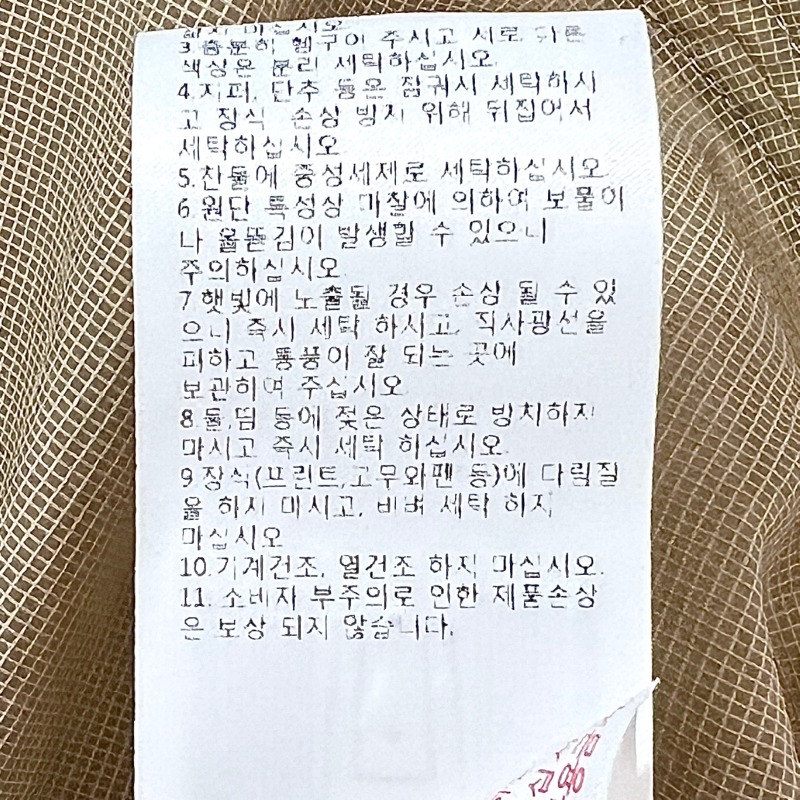 하지 마십시오
3.충분히 헹구어 주시고 서로 다른
색상은 분리 세탁하십시오.
4.지퍼, 단추 등은 잠궈서 세탁하시
고 장식 손상 방지 위해 뒤집어서
세탁하십시오
5.찬물에 중성세제로 세탁하십시오
6.원단 특성상 마찰에 의하여 보풀이
나 올뜯김이 발생할 수 있으니
주의하십시오
7.햇빛에 노출될 경우 손상 될 수 있
으니 즉시 세탁 하시고, 직사광선을
피하고 통풍이 잘 되는 곳에
보관하여 주십시오
8.물,땀 등에 젖은 상태로 방치하지
마시고 즉시 세탁 하십시오.
9.장식(프린트,고무와펜 등)에 다림질
을 하지 마시고, 비벼 세탁 하지
마십시오
10.기계건조, 열건조 하지 마십시오.
11.소비자 부주의로 인한 제품손상
은 보상 되지 않습니다.